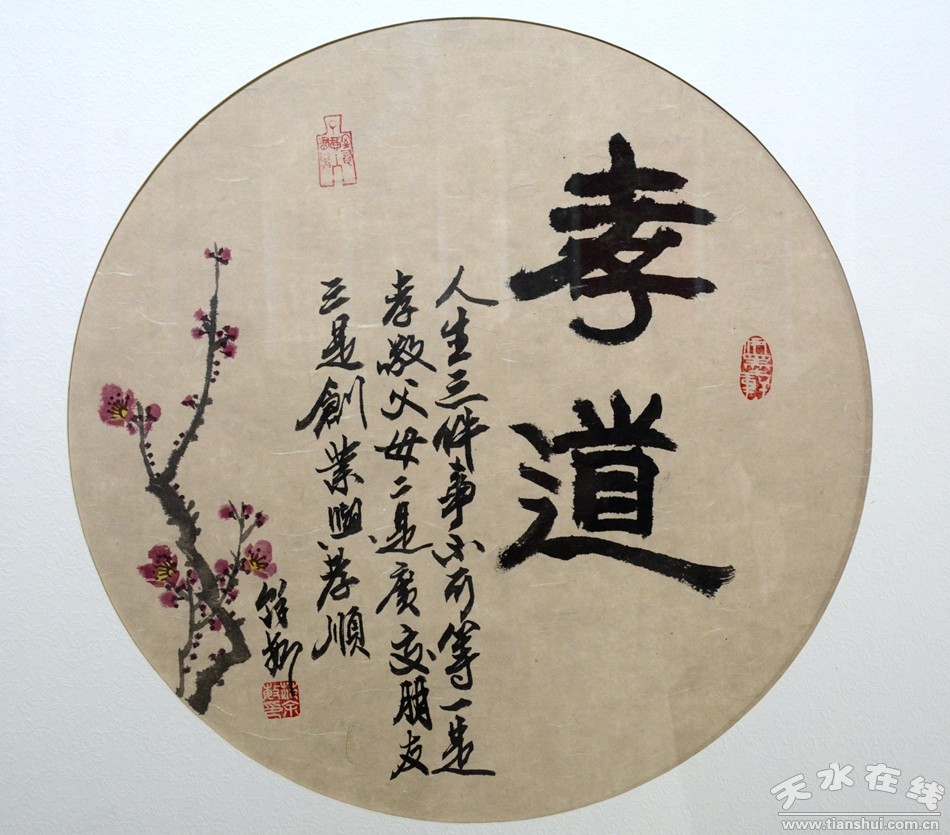 孝道
人生三件事不可等一是
孝敬父母二是廣交朋友
三是創業與孝順
天水在线
www.tianshui.com.cn